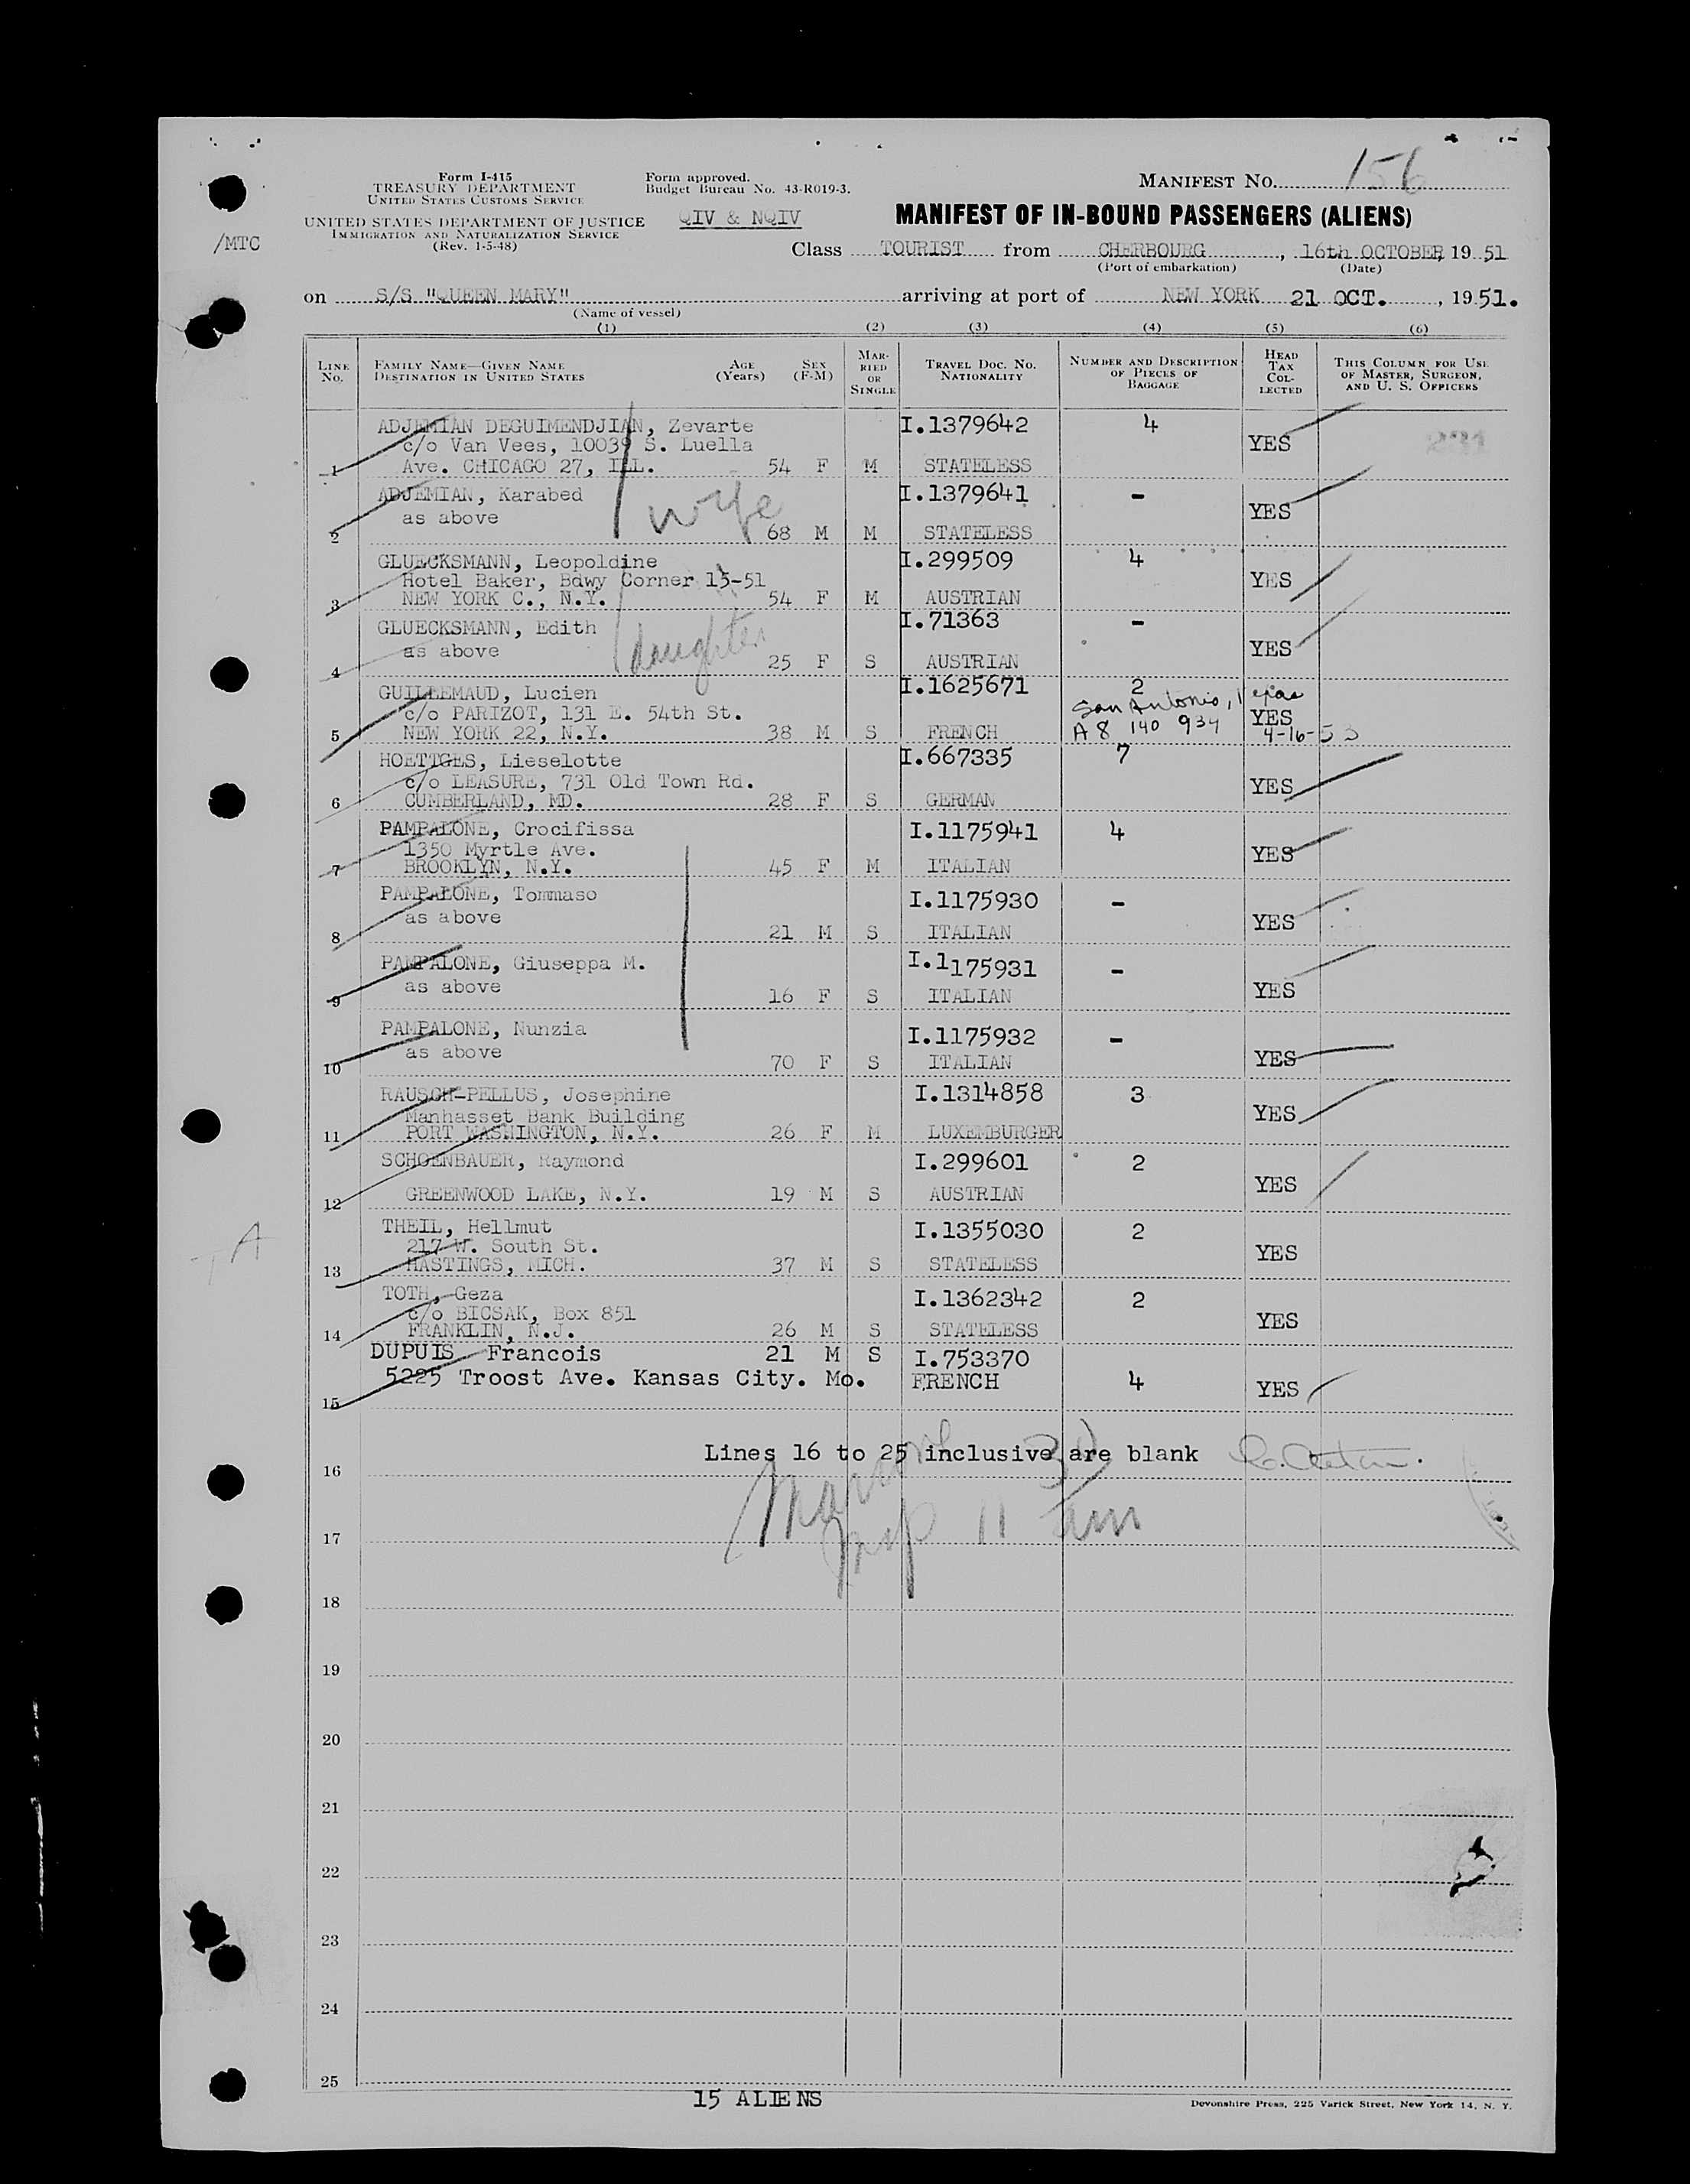 Form I-415
TREASURY DEPARTMENT
UNITED STATES CUSTOMS SERVICE
UNITED STATES DEPARTMENT OF JUSTICE
IMMIGRATION AND NATURALIZATION SERVICE
(Rev. 1-5-48)
/MTC
Form approved.
Budget Bureau No. 43-R019-3.
QIV & NQIV
MANIFEST NO. 156
MANIFEST OF IN-BOUND PASSENGERS (ALIENS)
Class TOURIST from CHERBOURG, 16th OCTOBER, 19 51
(Port of embarkation) (Date)
on S/S "QUEEN MARY" arriving at port of NEW YORK 21 OCT., 1951.
(Name of vessel)
(1) (2) (3) (4) (5) (6)
LINE NO. FAMILY NAME—GIVEN NAME DESTINATION IN UNITED STATES AGE (Years) SEX (F-M) MARRIED OR SINGLE TRAVEL DOC. NO. NATIONALITY NUMBER AND DESCRIPTION OF PIECES OF BAGGAGE HEAD TAX COLLECTED THIS COLUMN FOR USE OF MASTER, SURGEON, AND U. S. OFFICERS
ADJEMIAN DEGUIMENDJIAN, Zevarte I.1379642 4
c/o Van Vees, 10039 S. Luella YES
1 Ave. CHICAGO 27, ILL. 54 F M STATELESS
ADJEMIAN, Karabed I.1379641 -
as above wife YES
2 68 M M STATELESS
GLUECKSMANN, Leopoldine I.299509 4
Hotel Baker, Bdwy Corner 15-51 YES
3 NEW YORK C., N.Y. 54 F M AUSTRIAN
GLUECKSMANN, Edith I.71363 -
as above daughter YES
4 25 F S AUSTRIAN
GUILLEMAUD, Lucien I.1625671 2
c/o PARIZOT, 131 E. 54th St. San Antonio, Texas YES
5 NEW YORK 22, N.Y. 38 M S FRENCH A8 140 934 4-16-53
HOETTGES, Lieselotte I.667335 7
c/o LEASURE, 731 Old Town Rd. YES
6 CUMBERLAND, MD. 28 F S GERMAN
PAMPALONE, Crocifissa I.1175941 4
1350 Myrtle Ave. YES
7 BROOKLYN, N.Y. 45 F M ITALIAN
PAMPALONE, Tommaso I.1175930 -
as above YES
8 21 M S ITALIAN
PAMPALONE, Giuseppa M. I.1175931 -
as above YES
9 16 F S ITALIAN
PAMPALONE, Nunzia I.1175932 -
as above YES
10 70 F S ITALIAN
RAUSCH-PELLUS, Josephine I.1314858 3
Manhasset Bank Building YES
11 PORT WASHINGTON, N.Y. 26 F M LUXEMBURGER
SCHOENBAUER, Raymond I.299601 2
YES
12 GREENWOOD LAKE, N.Y. 19 M S AUSTRIAN
THEIL, Hellmut I.1355030 2
217 W. South St. YES
13 HASTINGS, MICH. 37 M S STATELESS
TOTH, Geza I.1362342 2
c/o BICSAK, Box 851 YES
14 FRANKLIN, N.J. 26 M S STATELESS
DUPUIS Francois 21 M S I.753370
5225 Troost Ave. Kansas City. Mo. FRENCH 4 YES
15
Lines 16 to 25 inclusive are blank
16
11 am
17
18
19
20
21
22
23
24
25
15 ALIENS
Devonshire Press, 225 Varick Street, New York 14, N. Y.